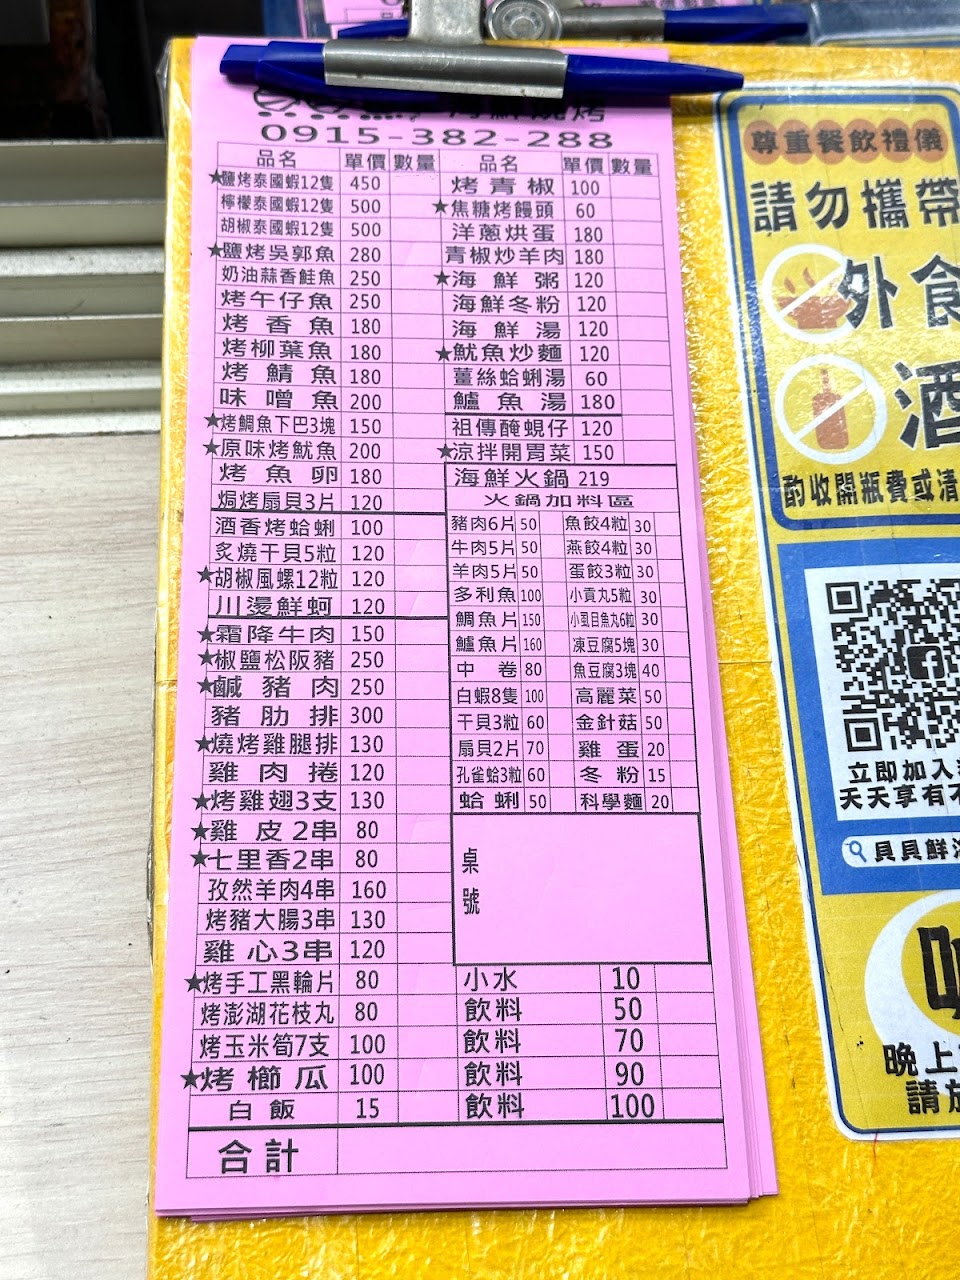 燒烤
0915-382-288
品名 單價 數量 品名 單價 數量
★鹽烤泰國蝦12隻 450
檸檬泰國蝦12隻 500
胡椒泰國蝦12隻 500
★鹽烤吳郭魚 280
奶油蒜香鮭魚 250
烤午仔魚 250
烤香魚 180
烤柳葉魚 180
烤鯖魚 180
味噌魚 200
★烤鯛魚下巴3塊 150
★原味烤魷魚 200
烤魚卵 180
焗烤扇貝3片 120
酒香烤蛤蜊 100
炙燒干貝5粒 120
★胡椒風螺12粒 120
川燙鮮蚵 120
★霜降牛肉 150
★椒鹽松阪豬 250
★鹹豬肉 250
豬肋排 300
★燒烤雞腿排 130
雞肉捲 120
★烤雞翅3支 130
★雞皮2串 80
★七里香2串 80
孜然羊肉4串 160
烤豬大腸3串 130
雞心3串 120
★烤手工黑輪片 80
烤澎湖花枝丸 80
烤玉米筍7支 100
★烤櫛瓜 100
白飯 15
烤青椒 100
★焦糖烤饅頭 60
洋蔥烘蛋 180
青椒炒羊肉 180
★海鮮粥 120
海鮮冬粉 120
海鮮湯 120
★魷魚炒麵 120
薑絲蛤蜊湯 60
鱸魚湯 180
祖傳醃蜆仔 120
★涼拌開胃菜 150
海鮮火鍋 219
火鍋加料區
豬肉6片 50 魚餃4粒 30
牛肉5片 50 燕餃4粒 30
羊肉5片 50 蛋餃3粒 30
多利魚 100 小貢丸5粒 30
鯛魚片 150 小虱目魚丸6粒 30
鱸魚片 160 凍豆腐5塊 30
中卷 80 魚豆腐3塊 40
白蝦8隻 100 高麗菜 50
干貝3粒 60 金針菇 50
扇貝2片 70 雞蛋 20
孔雀蛤3粒 60 冬粉 15
蛤蜊 50 科學麵 20
桌號
小水 10
飲料 50
飲料 70
飲料 90
飲料 100
合計
尊重餐飲禮儀
請勿攜帶
外食
酒
酌收開瓶費或清
立即加入
天天享有
貝貝鮮
晚上
請